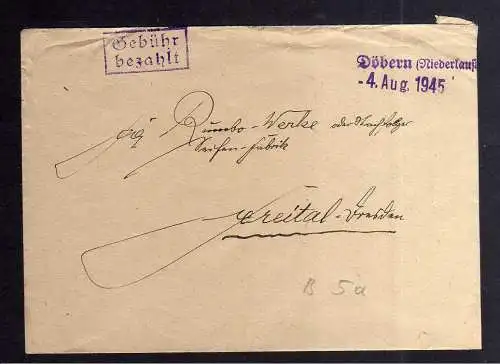 Gebühr
bezahlt
Döbern (Niederlaus
- 4. Aug. 1945
Rumbo-Werke oder Nachfolger
Seifen-Fabrik
Freital-Dresden
B 5a